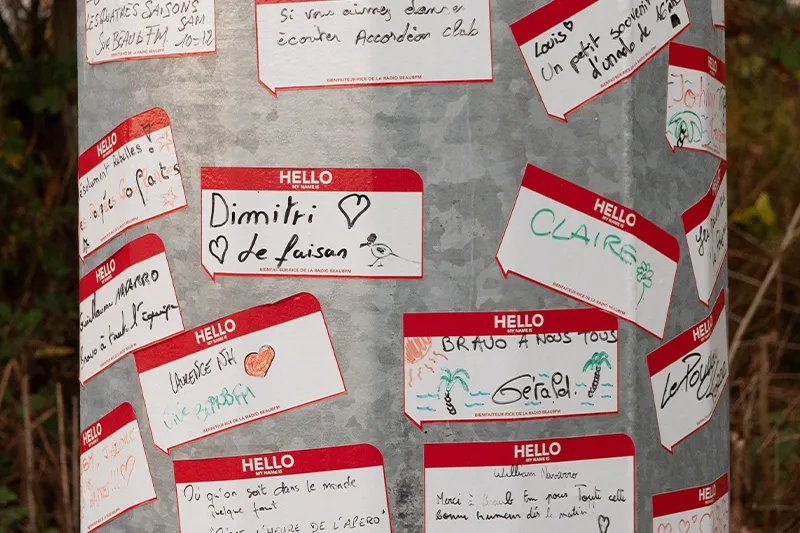 LES QUATRES SAISONS
SUR BEAUB FM SAM
10-12
BIENFAITEUR·RICE DE LA RADIO BEAUBFM
Si vous aimez danser
écouter Accordéon club
BIENFAITEUR·RICE DE LA RADIO BEAUBFM
Louis
Un petit souvenir
d'un ado de 16 ans
HELLO
HELLO
MY NAME IS
Rebelles !
HELLO
MY NAME IS
Dimitri
de faisan
BIENFAITEUR·RICE DE LA RADIO BEAUBFM
HELLO
MY NAME IS
CLAIRE
BIENFAITEUR·RICE DE LA RADIO BEAUBFM
HELLO
MY NAME IS
Guillaume NAVARRO
Bravo à toute l'équipe
HELLO
MY NAME IS
LAURENCE NH
Vive BEAUBFM
BIENFAITEUR·RICE DE LA RADIO BEAUBFM
HELLO
MY NAME IS
BRAVO A NOUS TOUS
Gérald.
BIENFAITEUR·RICE DE LA RADIO BEAUBFM
HELLO
MY NAME IS
HELLO
MY NAME IS
HELLO
MY NAME IS
Où qu'on soit dans le monde
quelque part
L'HEURE DE L'APERO
HELLO
MY NAME IS
William Navarro
Merci à Beaub Fm pour Toute cette
bonne humeur dès le matin
HELLO
MY NAME IS